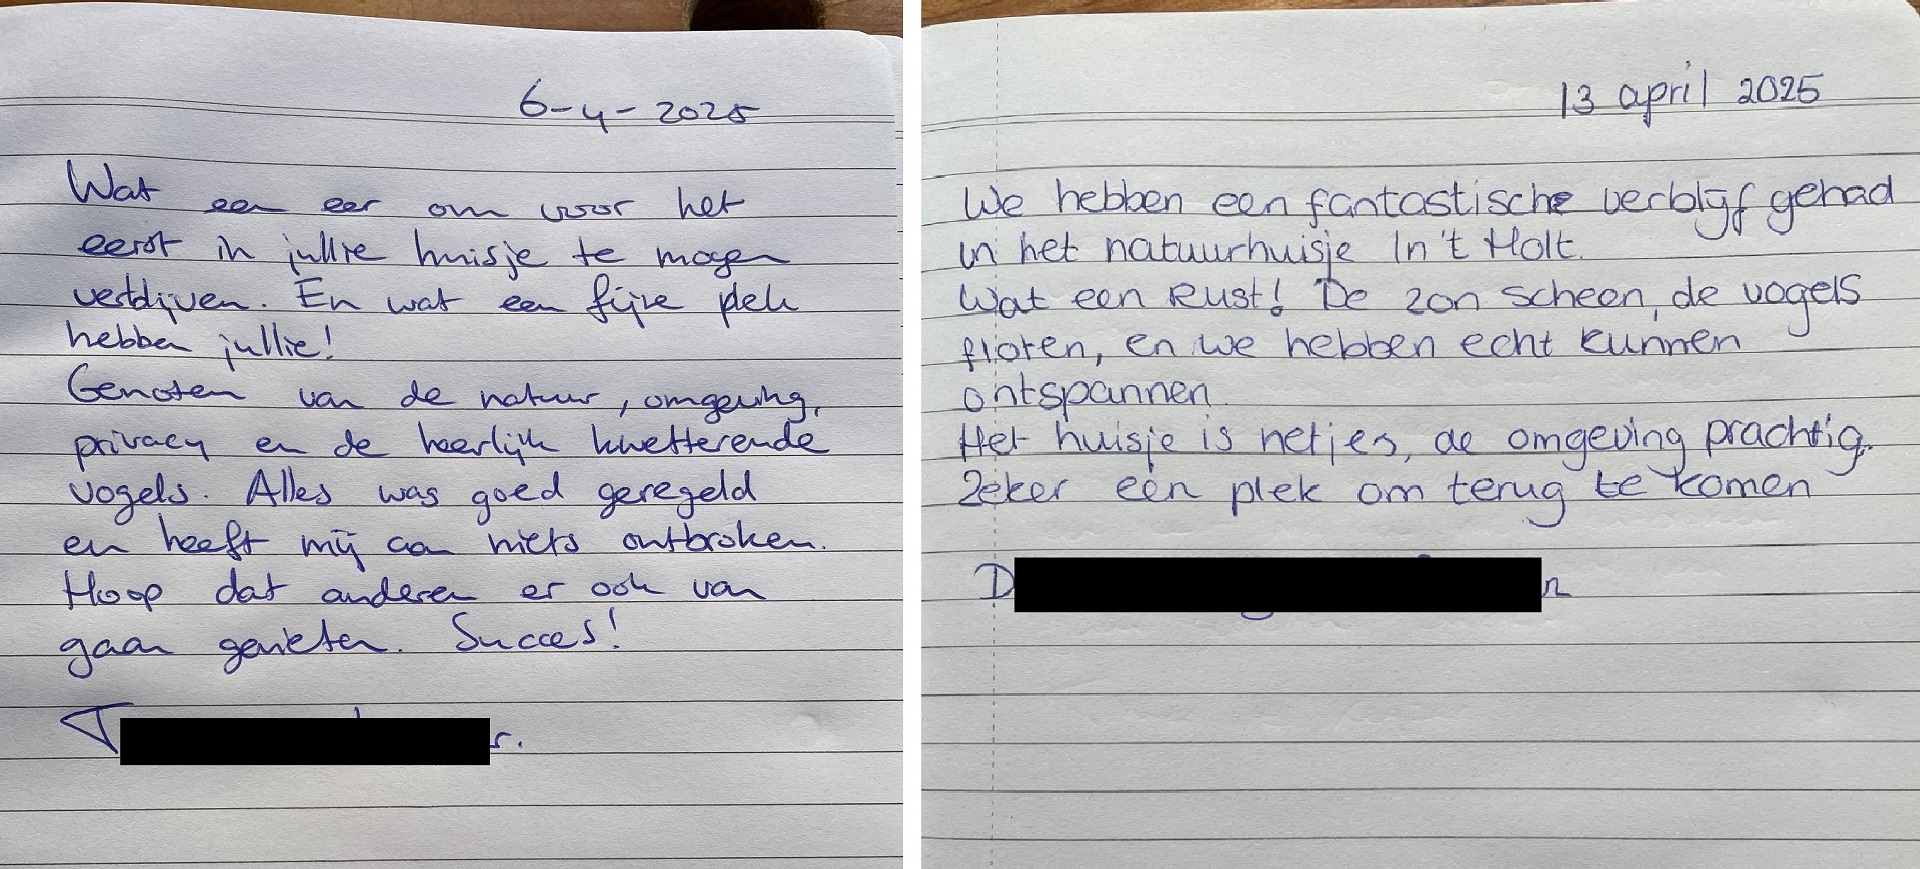 6-4-2025
Wat een eer om voor het
eerst in jullie huisje te mogen
verblijven. En wat een fijne plek
hebben jullie!
Genoten van de natuur, omgeving,
privacy en de heerlijk kwetterende
vogels. Alles was goed geregeld
en heeft mij aan niets ontbroken.
Hoop dat anderen er ook van
gaan genieten. Succes!
13 april 2025
We hebben een fantastische verblijf gehad
in het natuurhuisje In 't Holt.
Wat een rust! De zon scheen, de vogels
floten, en we hebben echt kunnen
ontspannen.
Het huisje is netjes, de omgeving prachtig.
Zeker een plek om terug te komen